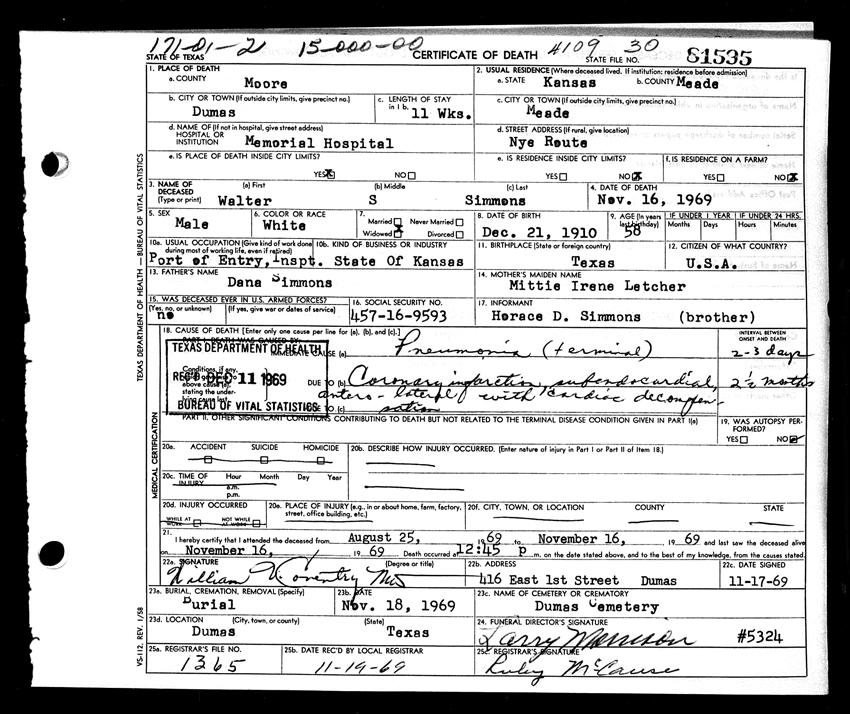 171-01-2 15-000-00 4109 30
STATE OF TEXAS CERTIFICATE OF DEATH STATE FILE NO. 81535
1. PLACE OF DEATH 2. USUAL RESIDENCE (Where deceased lived. If institution: residence before admission)
a. COUNTY Moore a. STATE Kansas b. COUNTY Meade
b. CITY OR TOWN (If outside city limits, give precinct no.) Dumas c. LENGTH OF STAY in 1 b. 11 Wks. c. CITY OR TOWN (If outside city limits, give precinct no.) Meade
d. NAME OF (If not in hospital, give street address) HOSPITAL OR INSTITUTION Memorial Hospital d. STREET ADDRESS (If rural, give location) Nye Route
e. IS PLACE OF DEATH INSIDE CITY LIMITS? YES X NO e. IS RESIDENCE INSIDE CITY LIMITS? YES NO X f. IS RESIDENCE ON A FARM? YES NO X
3. NAME OF DECEASED (Type or print) (a) First Walter (b) Middle S (c) Last Simmons 4. DATE OF DEATH Nov. 16, 1969
5. SEX Male 6. COLOR OR RACE White 7. Married Never Married Widowed X Divorced 8. DATE OF BIRTH Dec. 21, 1910 9. AGE (In years last birthday) 58 IF UNDER 1 YEAR Months Days IF UNDER 24 HRS. Hours Minutes
10a. USUAL OCCUPATION (Give kind of work done during most of working life, even if retired) Port of Entry, Inspt. 10b. KIND OF BUSINESS OR INDUSTRY State Of Kansas 11. BIRTHPLACE (State or foreign country) Texas 12. CITIZEN OF WHAT COUNTRY? U.S.A.
13. FATHER'S NAME Dana Simmons 14. MOTHER'S MAIDEN NAME Mittie Irene Letcher
15. WAS DECEASED EVER IN U.S. ARMED FORCES? (Yes, no, or unknown) no (If yes, give war or dates of service) 16. SOCIAL SECURITY NO. 457-16-9593 17. INFORMANT Horace D. Simmons (brother)
18. CAUSE OF DEATH [Enter only one cause per line for (a), (b), and (c).] INTERVAL BETWEEN ONSET AND DEATH
PART I. DEATH WAS CAUSED BY: IMMEDIATE CAUSE (a) Pneumonia (terminal) 2-3 days
TEXAS DEPARTMENT OF HEALTH
REC'D DEC 11 1969
BUREAU OF VITAL STATISTICS
Conditions, if any, above cause (a), stating the underlying cause last.
DUE TO (b) Coronary infarction, subendocardial, 2½ months
antero-lateral with cardiac decompen-
DUE TO (c) sation
PART II. OTHER SIGNIFICANT CONDITIONS CONTRIBUTING TO DEATH BUT NOT RELATED TO THE TERMINAL DISEASE CONDITION GIVEN IN PART I(a) 19. WAS AUTOPSY PERFORMED? YES NO
20a. ACCIDENT SUICIDE HOMICIDE 20b. DESCRIBE HOW INJURY OCCURRED. (Enter nature of injury in Part I or Part II of item 18.)
20c. TIME OF INJURY Hour Month Day Year a.m. p.m.
20d. INJURY OCCURRED WHILE AT WORK NOT WHILE AT WORK 20e. PLACE OF INJURY (e.g., in or about home, farm, factory, street, office building, etc.) 20f. CITY, TOWN, OR LOCATION COUNTY STATE
21. I hereby certify that I attended the deceased from August 25, 1969 to November 16, 1969 and last saw the deceased alive
on November 16, 1969 Death occurred at 12:45 p.m. on the date stated above, and to the best of my knowledge, from the causes stated.
22a. SIGNATURE William V. Coventry MD (Degree or title) 22b. ADDRESS 416 East 1st Street Dumas 22c. DATE SIGNED 11-17-69
23a. BURIAL, CREMATION, REMOVAL (Specify) Burial 23b. DATE Nov. 18, 1969 23c. NAME OF CEMETERY OR CREMATORY Dumas Cemetery
23d. LOCATION (City, town, or county) Dumas (State) Texas 24. FUNERAL DIRECTOR'S SIGNATURE Larry Morrison #5324
25a. REGISTRAR'S FILE NO. 1365 25b. DATE REC'D BY LOCAL REGISTRAR 11-19-69 25c. REGISTRAR'S SIGNATURE Ruby McCause
TEXAS DEPARTMENT OF HEALTH — BUREAU OF VITAL STATISTICS
MEDICAL CERTIFICATION
VS-112 REV. 1/58